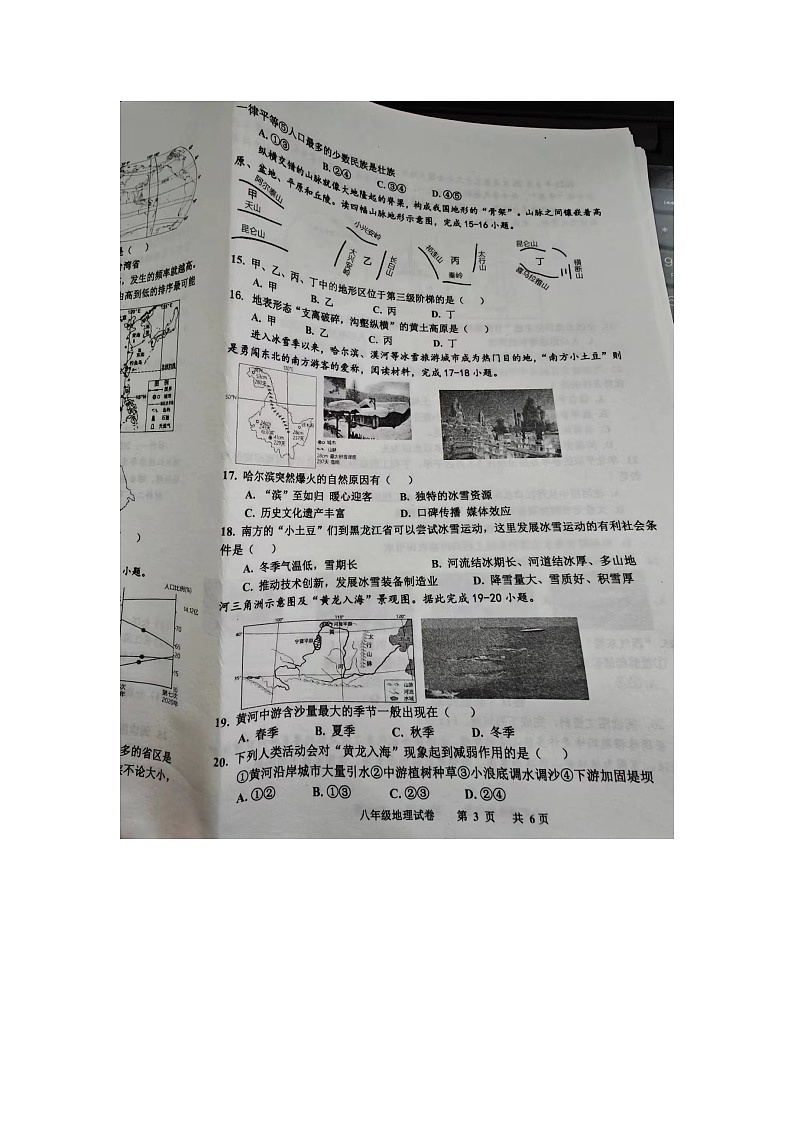 一律平等⑤人口最多的少数民族是壮族
A.①③ B.②④ C.③④ D.④⑤
纵横交错的山脉就像大地隆起的脊梁,构成我国地形的“骨架”。山脉之间镶嵌着高
原、盆地、平原和丘陵。读四幅山脉地形示意图,完成15-16小题。
阿尔泰山
甲
天山
昆仑山
小兴安岭
大兴安岭
乙
长白山
祁连山
丙
太行山
秦岭
昆仑山
丁
横断山
喜马拉雅山
15. 甲、乙、丙、丁中的地形区位于第三级阶梯的是( )
A. 甲 B. 乙 C. 丙 D. 丁
16. 地表形态“支离破碎,沟壑纵横”的黄土高原是( )
A. 甲 B. 乙 C. 丙 D. 丁
进入冰雪季以来,哈尔滨、漠河等冰雪旅游城市成为热门目的地,“南方小土豆”则
是勇闯东北的南方游客的爱称,阅读材料,完成17-18小题。
50°N
城市
山脉
17. 哈尔滨突然爆火的自然原因有( )
A. “滨”至如归 暖心迎客 B. 独特的冰雪资源
C. 历史文化遗产丰富 D. 口碑传播 媒体效应
18. 南方的“小土豆”们到黑龙江省可以尝试冰雪运动,这里发展冰雪运动的有利社会条
件是( )
A. 冬季气温低,雪期长 B. 河流结冰期长、河道结冰厚、多山地
C. 推动技术创新,发展冰雪装备制造业 D. 降雪量大、雪质好、积雪厚
河三角洲示意图及“黄龙入海”景观图。据此完成19-20小题。
100° 110° 120°
宁夏平原
河套平原
黄
河
太行山脉
山脉
河流
水域
19. 黄河中游含沙量最大的季节一般出现在( )
A. 春季 B. 夏季 C. 秋季 D. 冬季
20. 下列人类活动会对“黄龙入海”现象起到减弱作用的是( )
①黄河沿岸城市大量引水②中游植树种草③小浪底调水调沙④下游加固堤坝
A.①② B.①③ C.②③ D.②④
八年级地理试卷 第 3 页 共 6 页
台湾省
发生的频率就越高。
由高到低的排序最可能
图 例
小题。
人口比例(%)
14.12亿
70
65
20
15
10
第七次
2020年
多的省区是
不论大小,